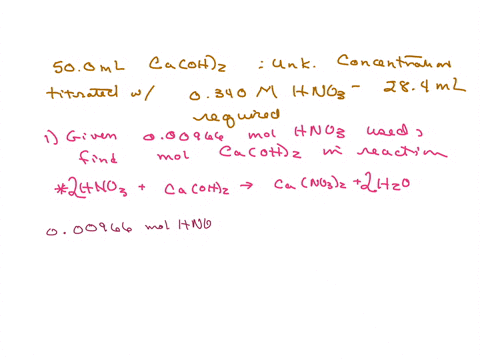 50.0mL Ca(OH)2 : Unk. Concentration
titrated w/ 0.340 M HNO3 - 28.4 mL
required
1) Given 0.00966 mol HNO3 used,
find mol Ca(OH)2 in reaction
*2HNO3 + Ca(OH)2 → Ca(NO3)2 + 2H2O
0.00966 mol HNO